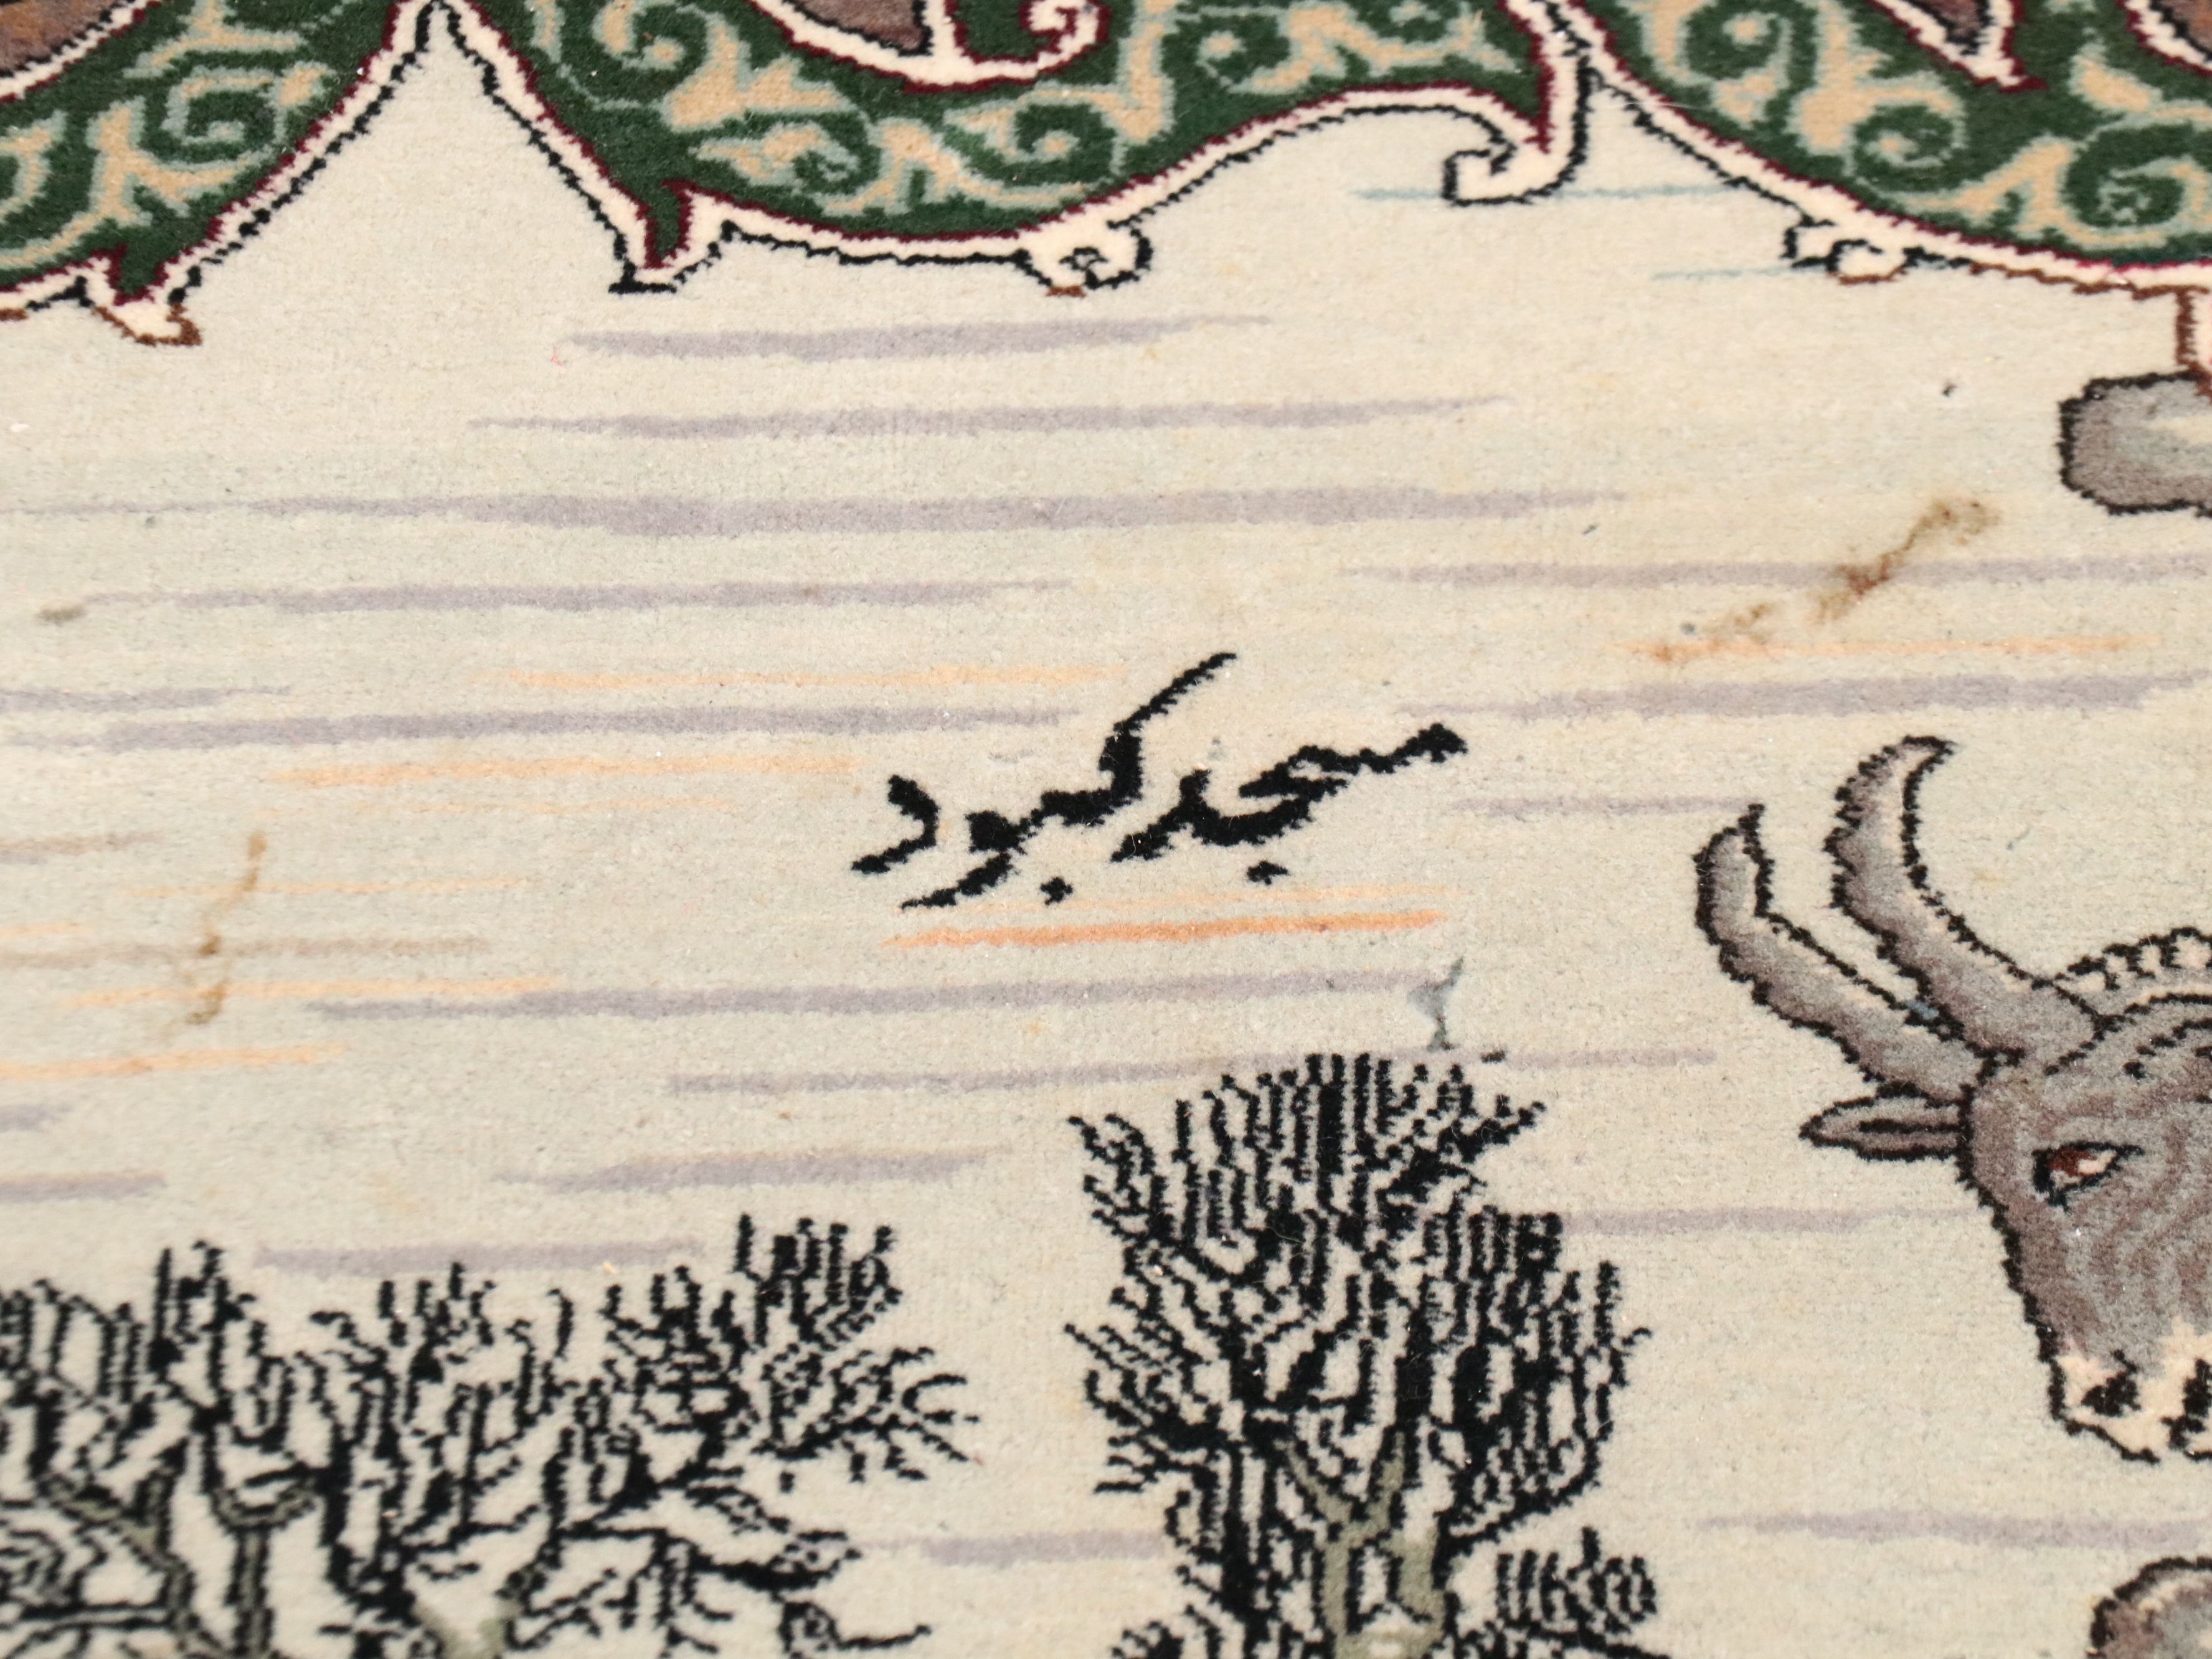 مسجد کبود